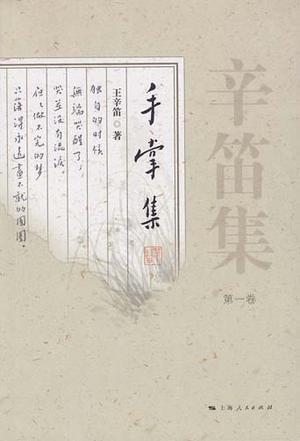 辛笛集
第一卷
手掌集
王辛笛·著
独自的时候
无端哭醒了，
哭并没有流泪。
做不完的梦
只落得永远画不就的圆圈。
上海人民出版社